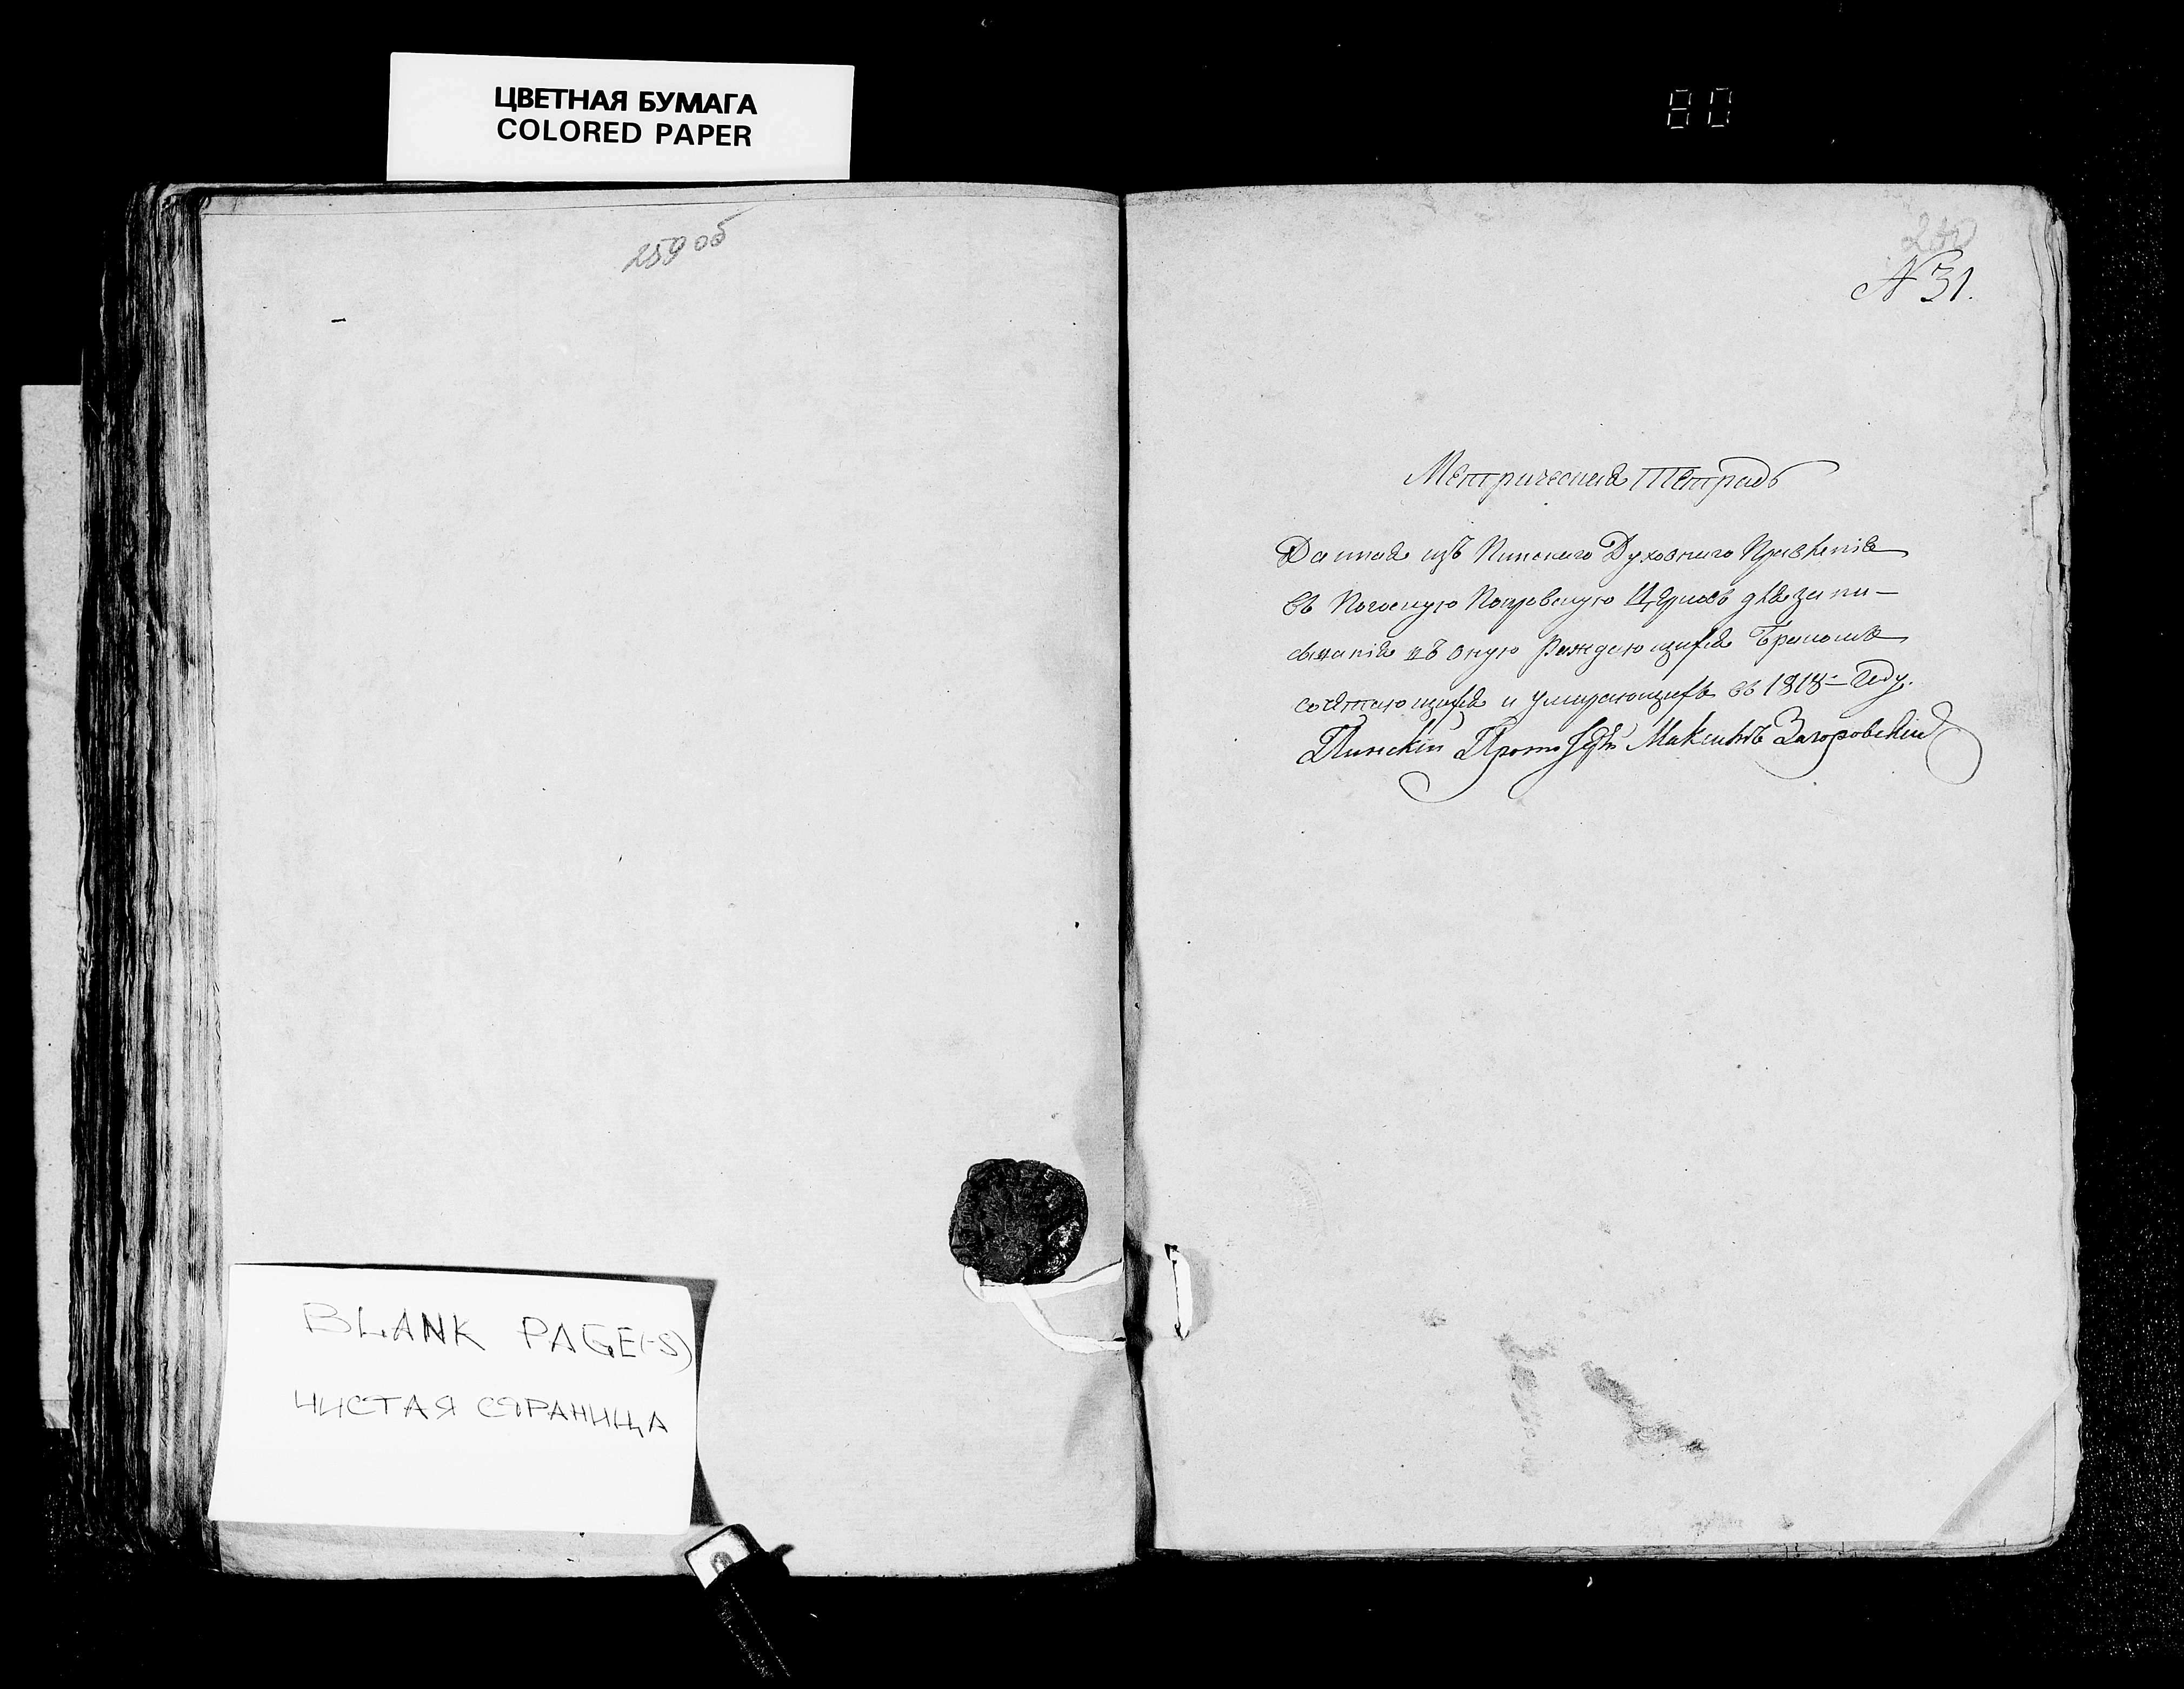 ЦВЕТНАЯ БУМАГА
COLORED PAPER
80
259 об
260
N 31.
Метрическая Тетрадь
Данная изъ Пинскаго Духовнаго Правленія
въ Погосную Покровскую Церковь для запи-
сыванія въ оную Рождающихся Бракомъ
сочетающихся и умирающихъ въ 1818 году.
Пинскій Прото Максимъ Загоровскій
BLANK PAGE(-S)
ЧИСТАЯ СТРАНИЦА